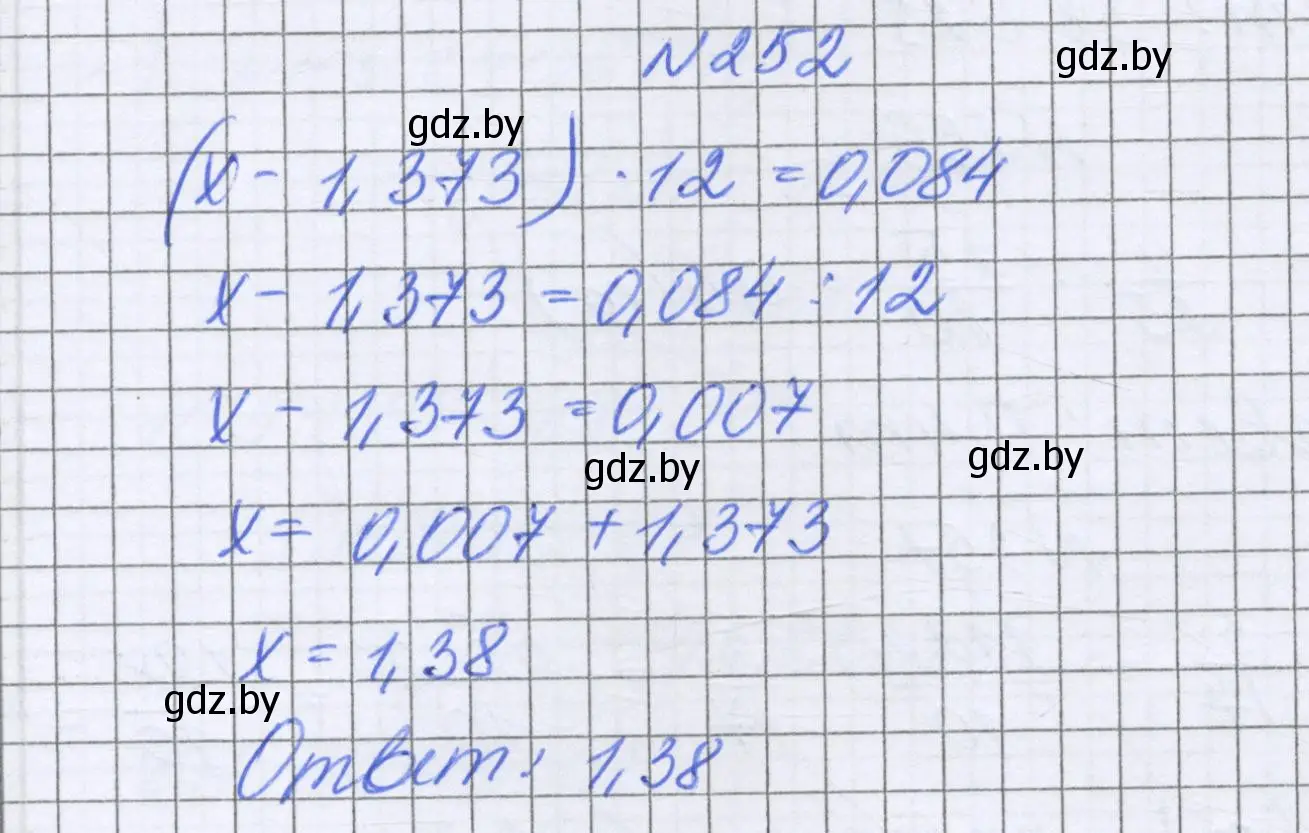 №252
gdz.by
gdz.by
(x - 1,373) · 12 = 0,084
x - 1,373 = 0,084 : 12
x - 1,373 = 0,007
gdz.by
gdz.by
x = 0,007 + 1,373
x = 1,38
gdz.by
Ответ: 1,38